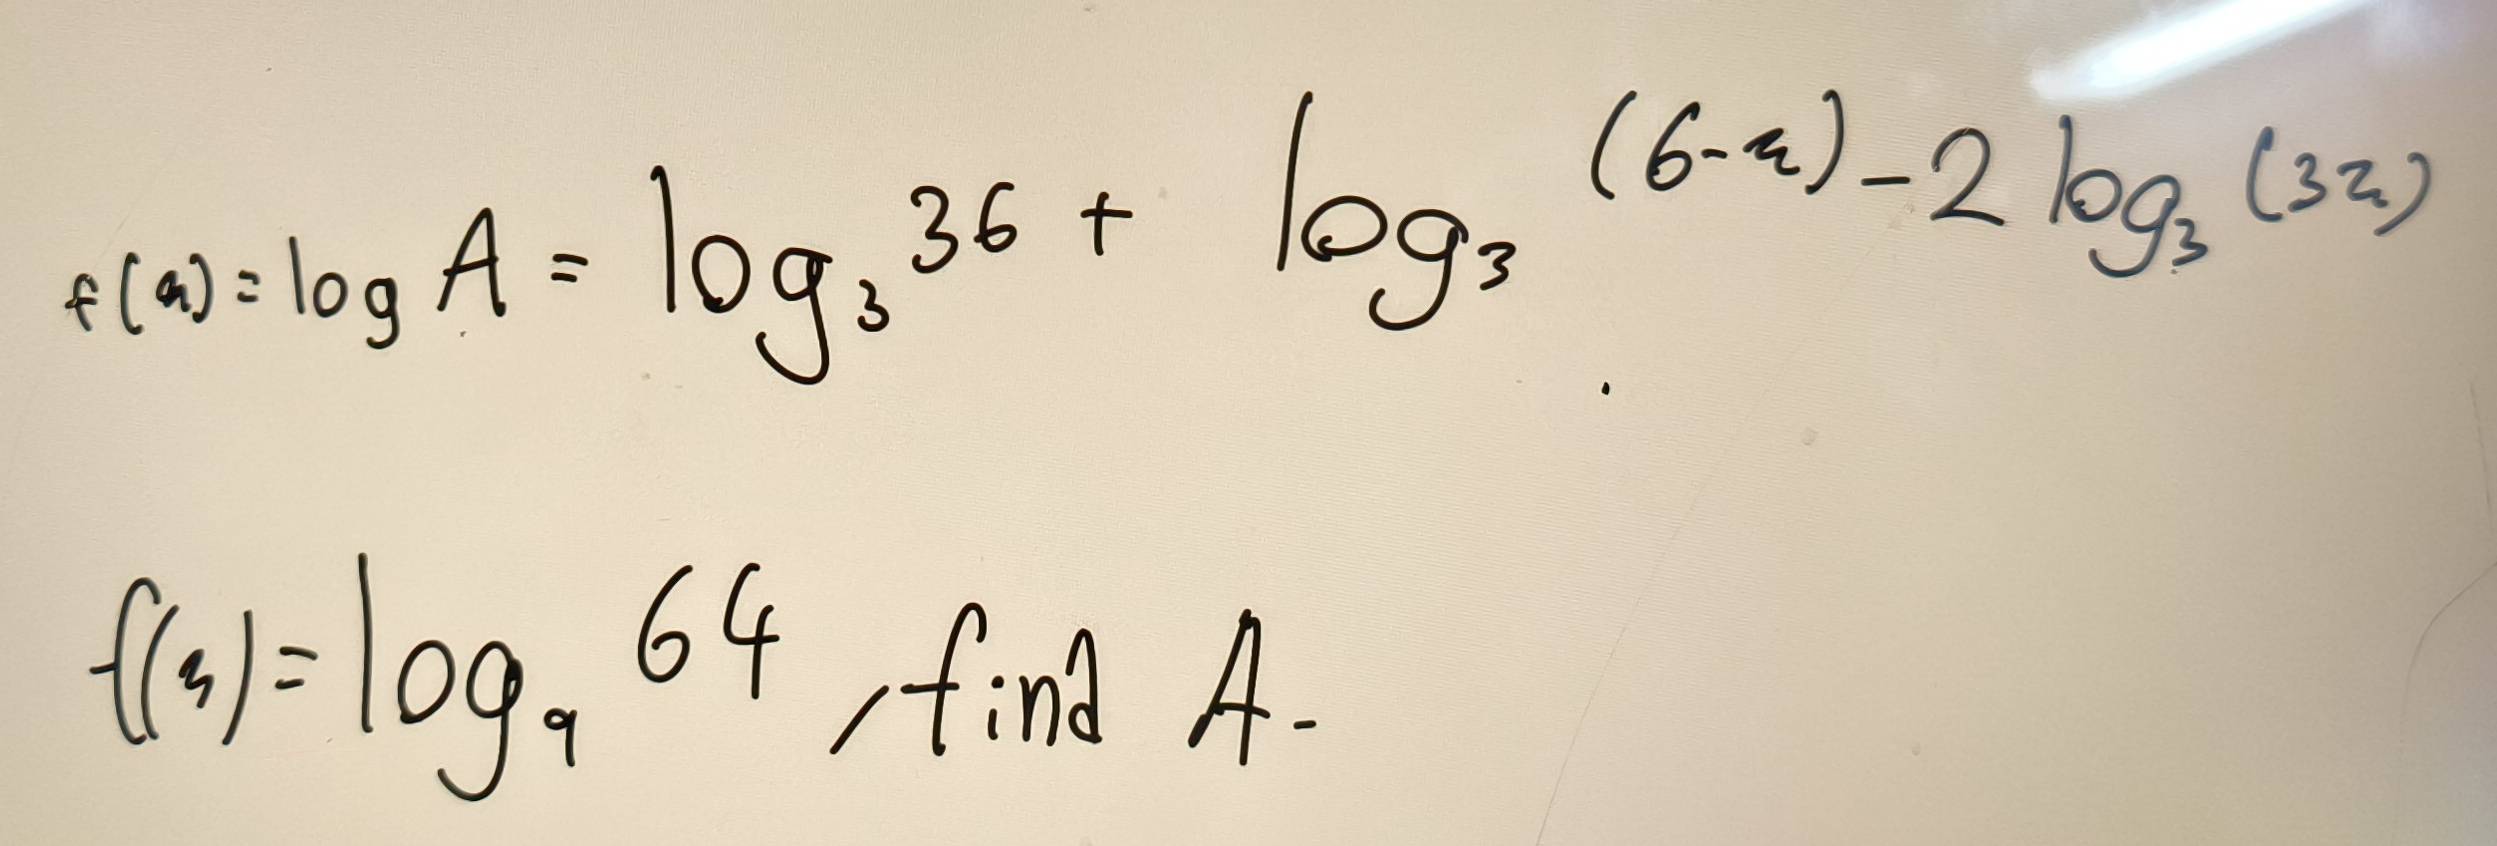 f(x) = log A = log₃ 36 + log₃ (6-x) - 2 log₃ (3x)
f(x) = log₉ 64, find A.